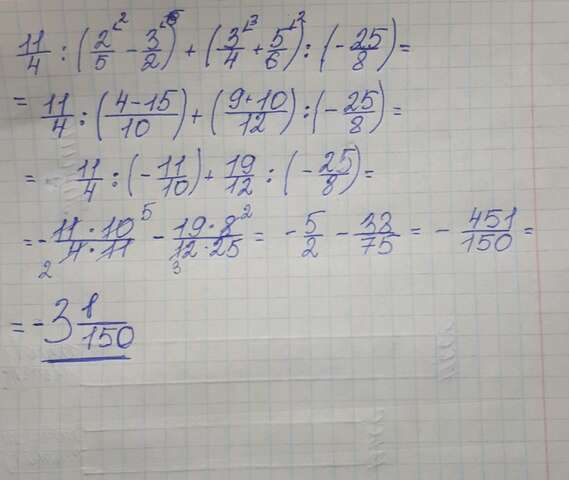 11/4 : (2/5^2 - 3/2^5) + (3/4^3 + 5/6^2) : (-25/8) =
= 11/4 : (4-15/10) + (9+10/12) : (-25/8) =
= 11/4 : (-11/10) + 19/12 : (-25/8) =
= - 11·10^5/2 4·11 - 19·8^2/3 12·25 = -5/2 - 38/75 = - 451/150 =
= -3 1/150